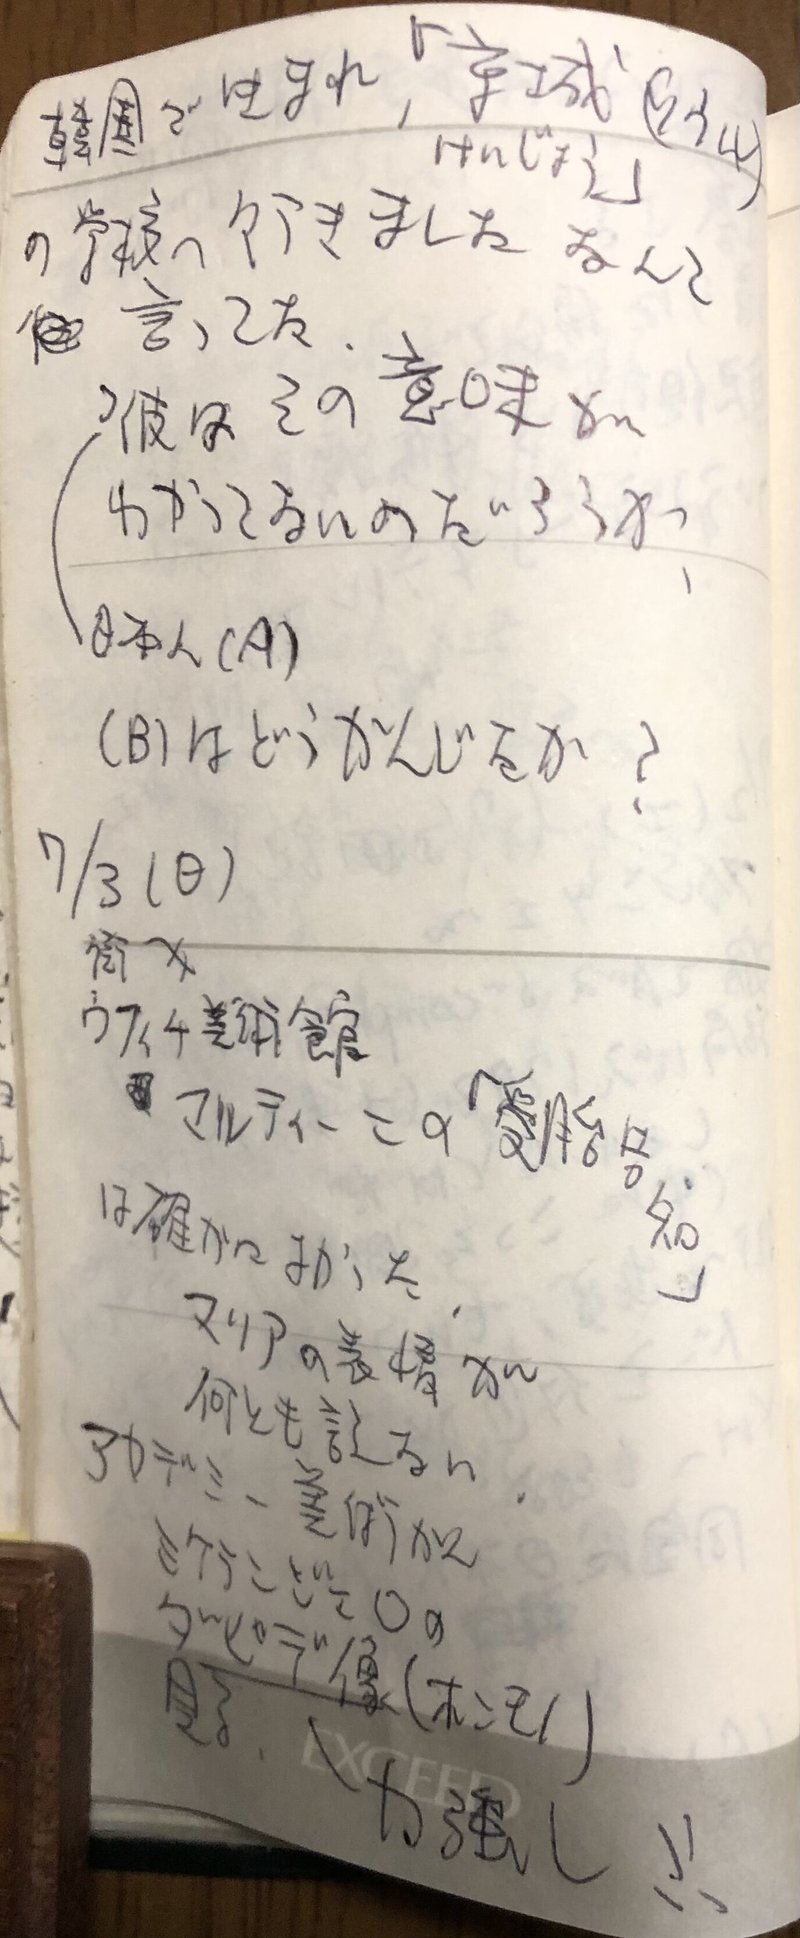 韓国で生まれ、「京城(ソウル)
けいじょう」
の学校へ行きましたなんて
言ってた.
彼はその意味が
わかってないのだろうか、
日本人(A)
(B)はどうかんじたか?
7/3(日)
街へ
ウフィチ美術館
マルティーニの「受胎告
知」
は確かによかった.
マリアの表情が
何とも言えない.
アカデミー美
ミケランジェロの
ダビデ像(ホンモノ)
見る.
力強し!!
EXCEED